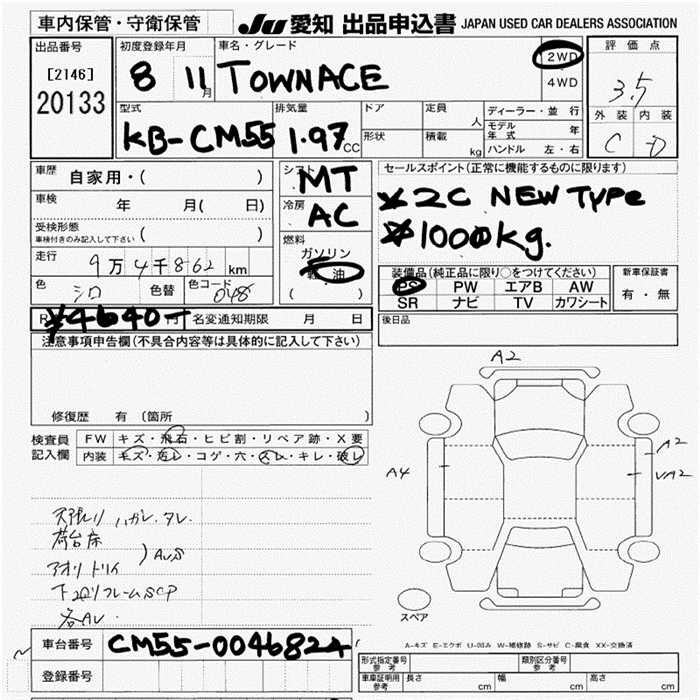 車内保管・守衛保管
JU 愛知 出品申込書 JAPAN USED CAR DEALERS ASSOCIATION
出品番号
[2146]
20133
初度登録年月
8 11月
車名・グレード
TOWNACE
2WD
4WD
評価点
3.5
外装 内装
C D
型式
KB-CM55
排気量
1.97CC
ドア
定員 人
形状
積載 kg
ディーラー・並行
モデル年式 年
ハンドル 左・右
車歴
自家用・( )
車検 年 月( 日)
受検形態
車検付きのみ記入して下さい ( )
走行
9万4千862km
色 シロ 色替 色コード 048
シフト
MT
冷房
AC
燃料
ガソリン
軽油
( )
セールスポイント(正常に機能するものに限ります)
*2C NEW TYPE
*1000kg.
装備品(純正品に限り○をつけてください)
PS PW エアB AW
SR ナビ TV カワシート
新車保証書
有・無
R ¥4640- 円 名変通知期限 月 日
後日品
注意事項申告欄(不具合内容等は具体的に記入して下さい)
修復歴 有(箇所 )
検査員記入欄
FW キズ・飛石・ヒビ割・リペア跡・X要
内装 キズ・汚レ・コゲ・穴・スレ・キレ・破レ
天張り ハガレ、タレ
荷台床
アオリ トリイ ) AUS
下回りフレームSCP
各AU
A2
A4
A2
UA2
スペア
A-キズ E-エクボ U-凹み W-補修跡 S-サビ C-腐食 XX-交換済
車台番号 CM55-0046824
登録番号
形式指定番号 参考
類別区分番号 参考
車庫証明用 参考 長さ cm 幅 cm 高さ cm